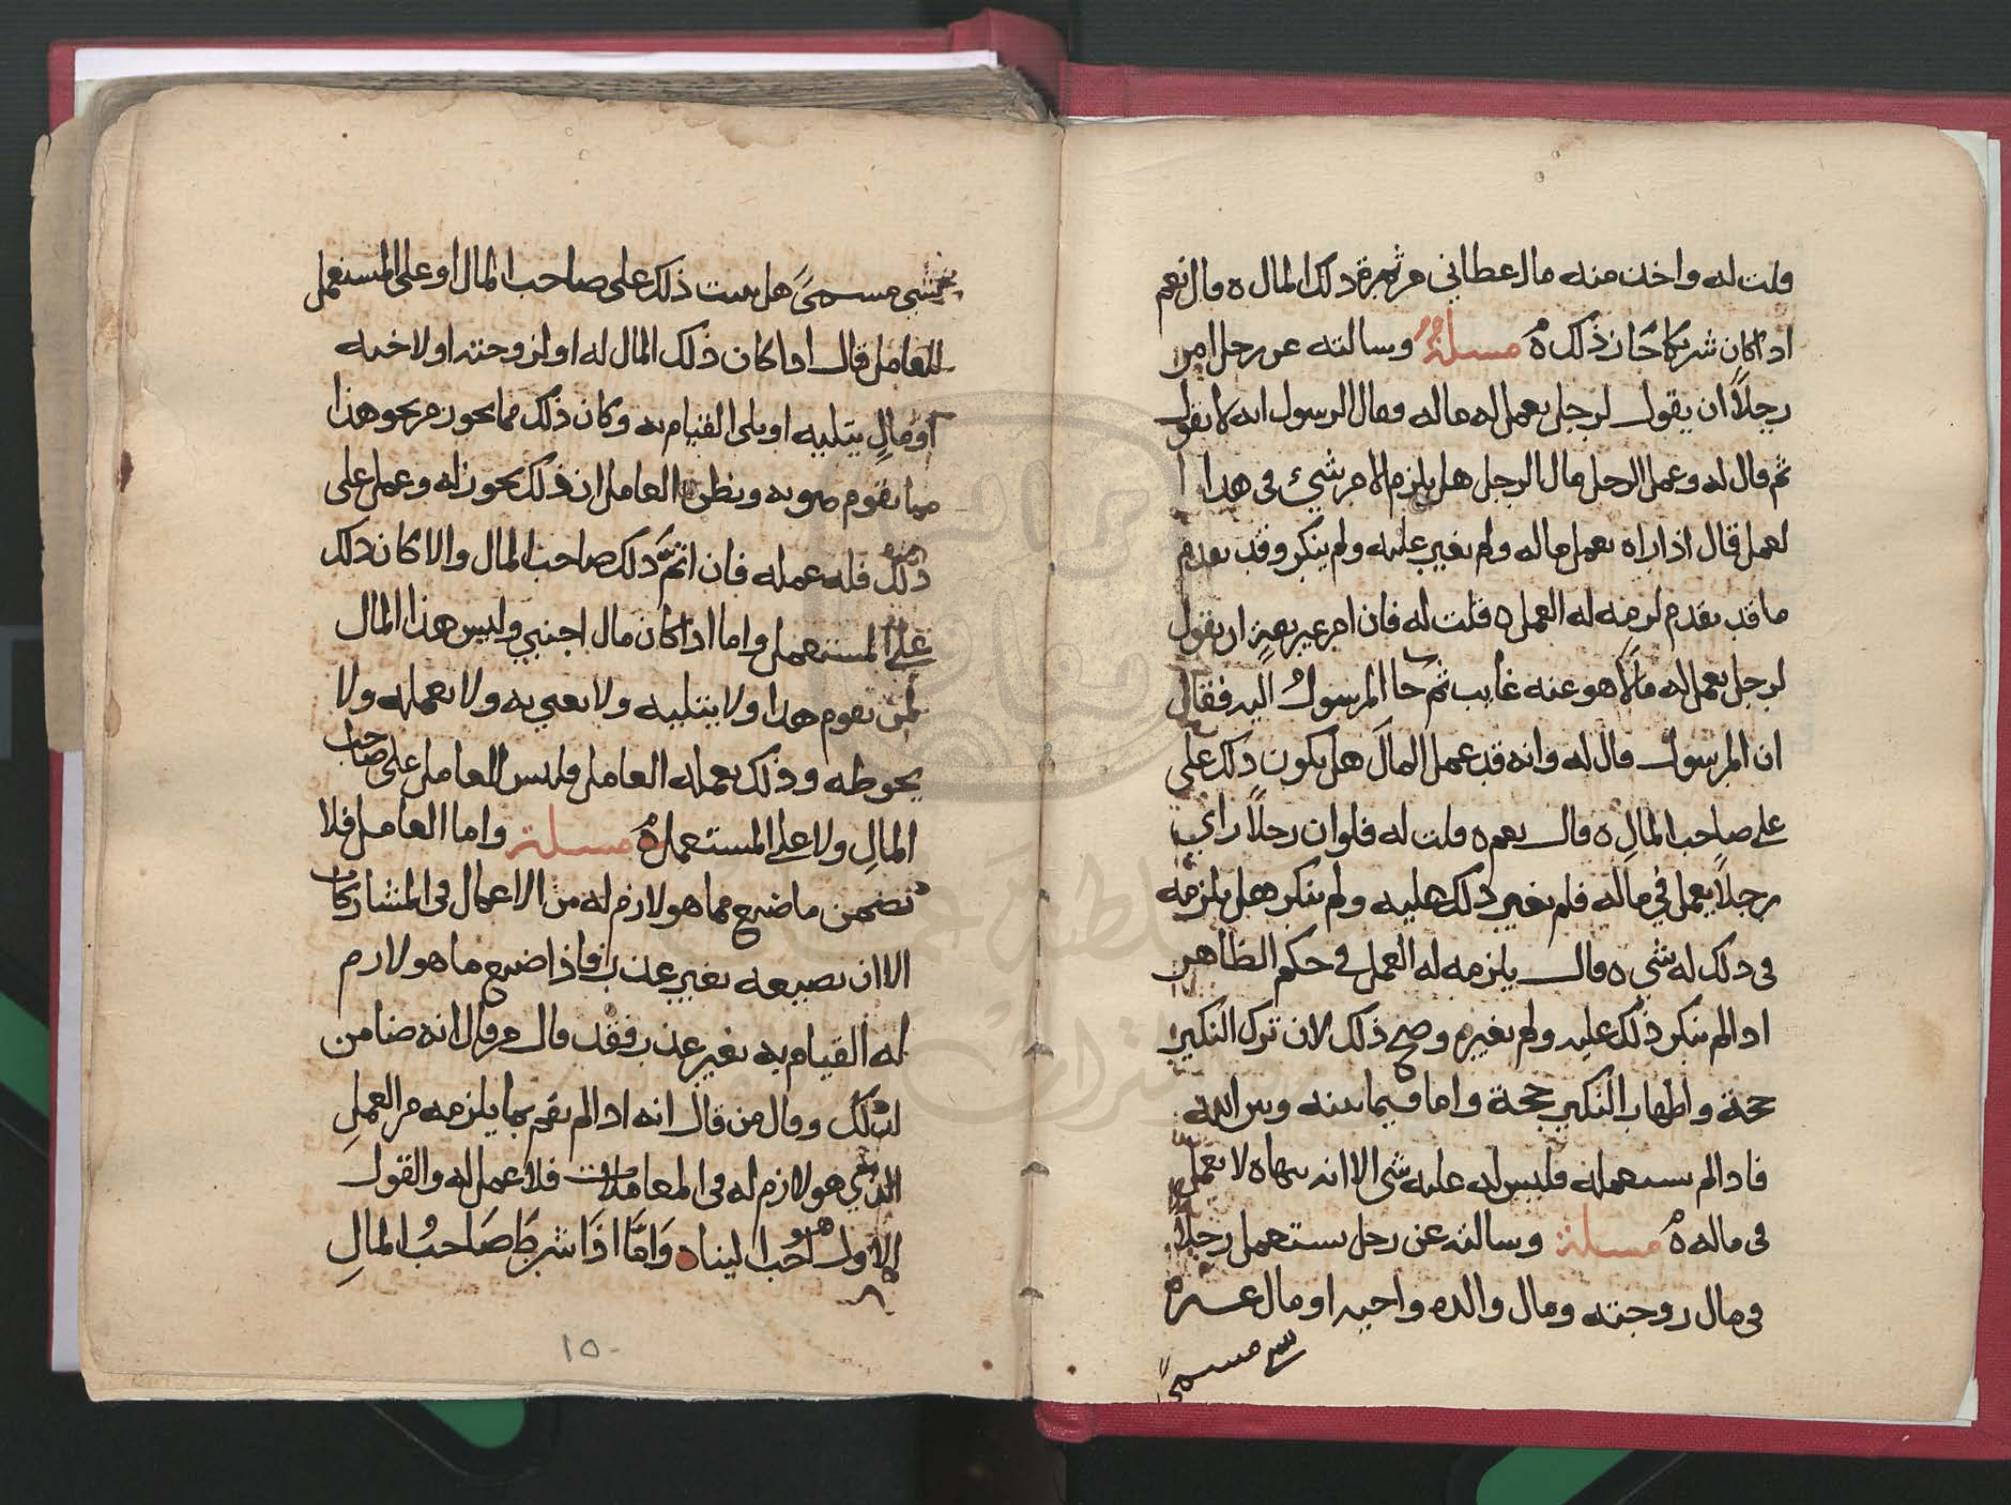 قلت له واخذت منه مال عطاني من ثمرة ذلك المال ه قال نعم
اذا كان شريكا جاز ذلك ه مسئلة وسالته عن رجل امر
رجلاً ان يقول لرجل يعمل له ماله وقال الرسول انه لا يقول
ثم قال له وعمل الرجل مال الرجل هل يلزم الامر شيء في هذا ا
لعمل قال اذا راه يعمل ماله ولم يغير عليه ولم ينكر وقد تقدم
ما قد تقدم لزمه له العمل ه قلت له فان امر غير ثقةٍ ان يقول
لرجل يعمل له مالاً هو عنه غايب ثم جا المرسول اليه فقال
ان المرسول قال له وانه قد عمل المال هل يكون ذلك على
على صاحب المالِ ه قال نعم ه قلت له فلو ان رجلاً راى
رجلاً يعمل في ماله فلم يغير ذلك عليه ولم ينكر هل يلزمه
في ذلك له شي ه قال يلزمه له العمل في حكم الظاهر
اذا لم ينكر ذلك عليه ولم يغير وصح ذلك لان ترك النكير
حجة واظهار النكير حجة واما فيما بينه وبين الله
فاذا لم يستعمله فليس له عليه شي الا انه ينهاه لا يعمل
في ماله ه مسئلة وسالته عن رجل يستعمل رجلاً
في مال زوجته ومال والده واخيه او مال غيره
شي مسمىً
بشي مسمىً هل يثبت ذلك على صاحب المال او على المستعمل
للعامل قال اذا كان ذلك المال له او لزوجته او لاخيه
او مالٍ يتليه او يلى القيام به وكان ذلك مما يجوز من نحو هذا
مما يقوم هو به ويظن العامل ان ذلك يجوز له وعمل على
ذلك فله عمله فان اتمَّ ذلك صاحب المال والا كان ذلك
على المستعمل واما اذا كان مال اجنبي وليس هذا المال
لمن يقوم هذا ولا يتليه ولا يعني به ولا يعمله ولا
يحوطه وذلك يعمله العامل فليس للعامل على صاحب
المالِ ولا على المستعمل ه مسئلة واما العامل فلا
يضمن ما ضيع مما هو لازم له من الاعمال في المشاركات
الا ان يضيعه بغير عذر فاذا ضيع ما هو لازم
له القيام به بغير عذر فقد قال من قال انه ضامن
لذلك وقال من قال انه اذا لم يقم بما يلزمه من العملِ
الذي هو لازم له في المعاملات فلا عمل له والقول
الاول هو احب الينا ه وَامَّا اذَا شرطَ صَاحبُ المالِ
١٥